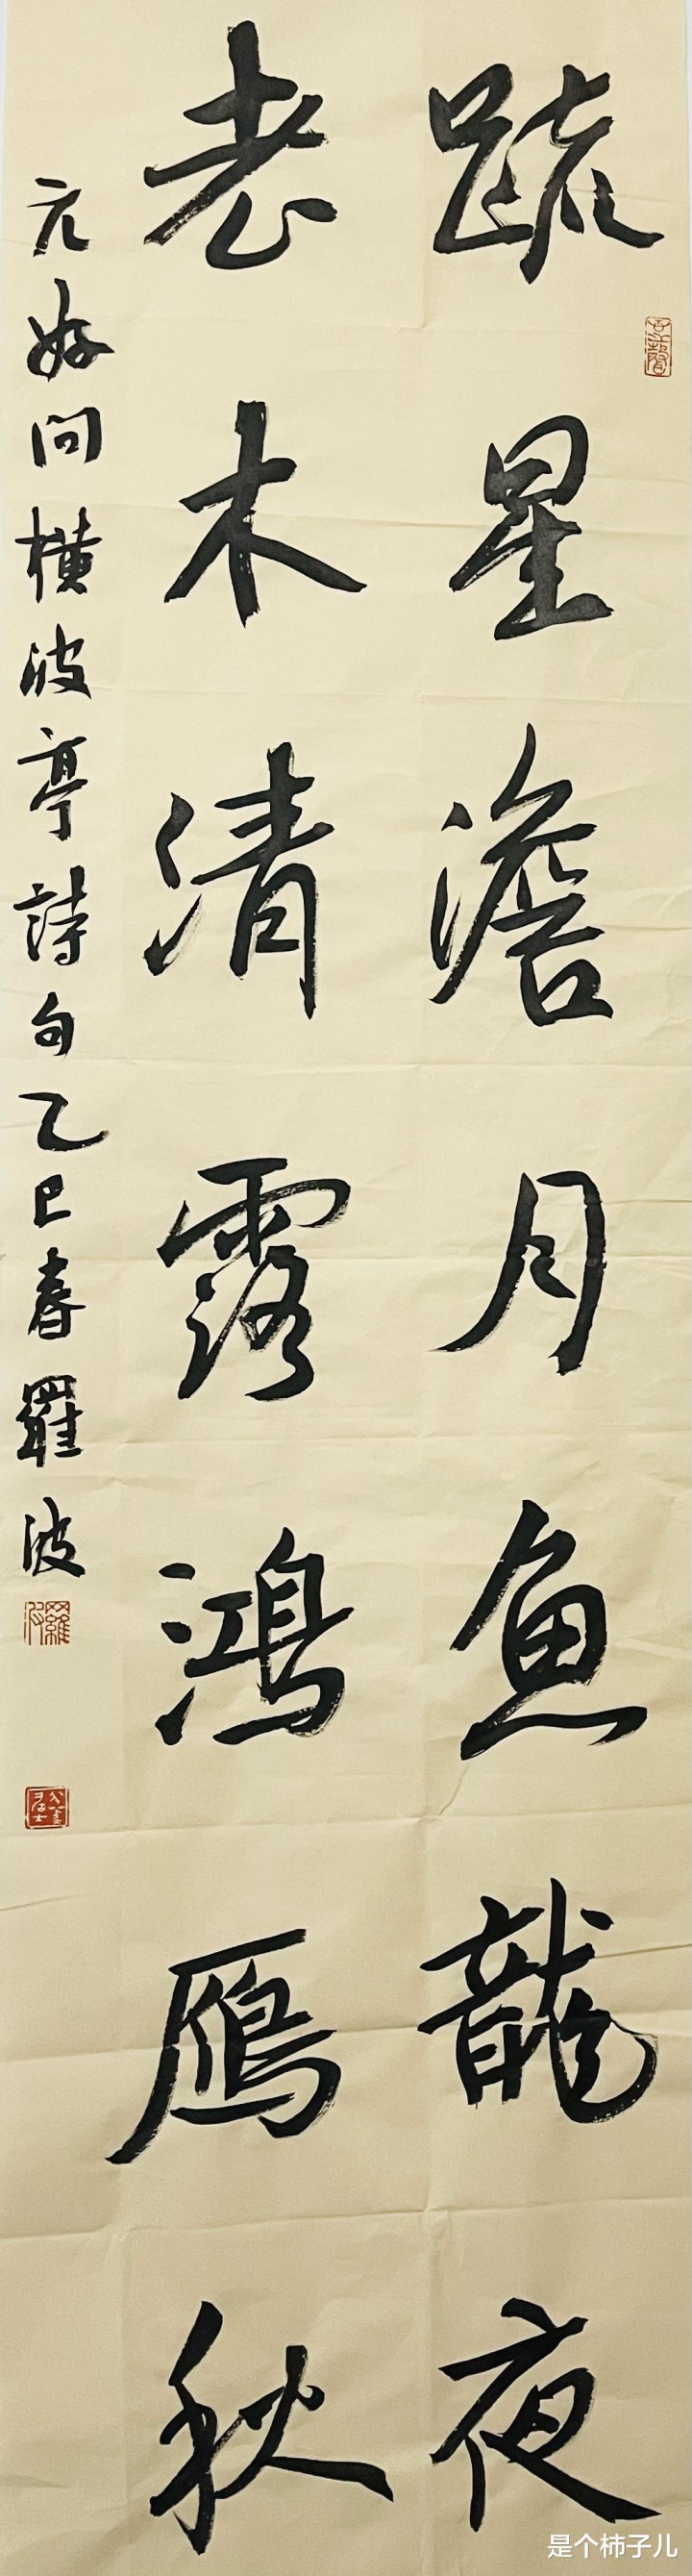 疏星澹月魚龍夜
老木清霜鴻鴈秋
元好問橫波亭詩句乙巳春羅波
羅波
是个柿子儿